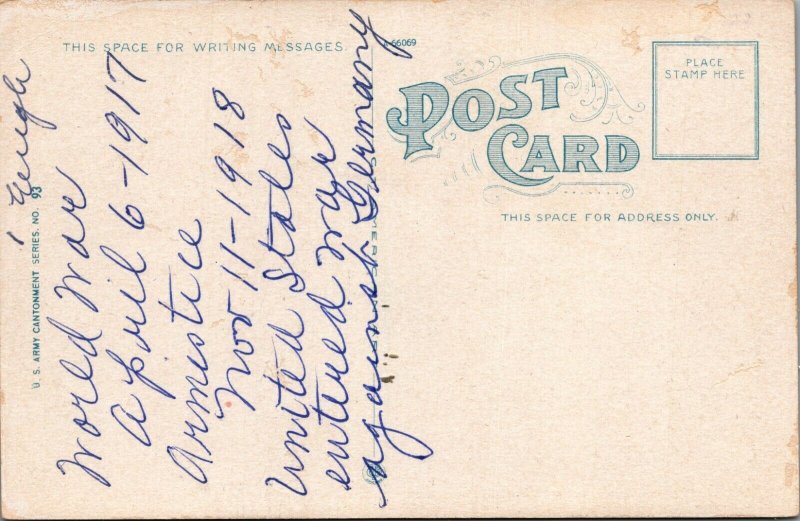 THIS SPACE FOR WRITING MESSAGES.
A-66069
POST CARD
PLACE
STAMP HERE
THIS SPACE FOR ADDRESS ONLY.
U. S. ARMY CANTONMENT SERIES. NO. 93
World War
April 6-1917
Armistice
Nov 11-1918
United States
entered war
against Germany